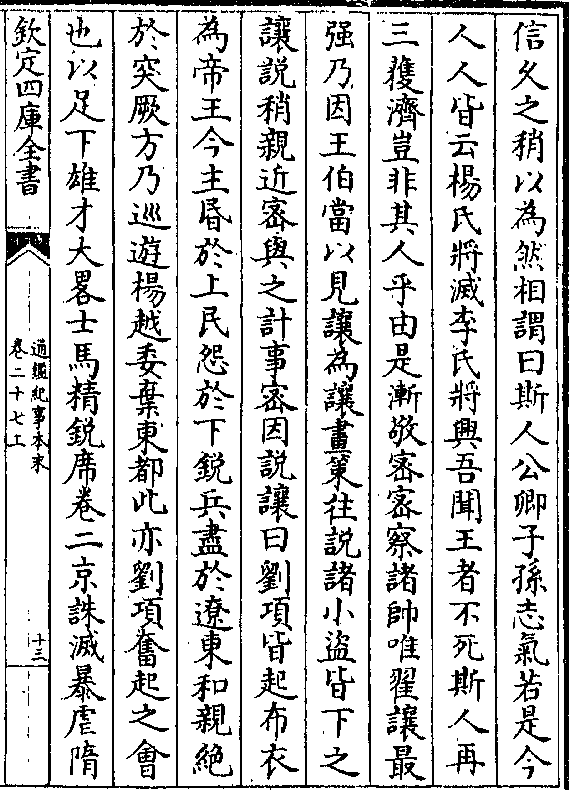 信久之稍以為然相謂曰斯人公卿子孫志氣若是今
人人皆云楊氏將滅李氏將興吾聞王者不死斯人再
三獲濟豈非其人乎由是漸敬密密察諸帥唯翟讓最
强乃因王伯當以見讓為讓畫策往説諸小盜皆下之
讓説稍親近密與之計事密因説讓曰劉項皆起布衣
為帝王今主昏於上民怨於下鋭兵盡於遼東和親絶
於突厥方乃巡遊楊越委棄東都此亦劉項奮起之會
也以足下雄才大畧士馬精鋭席卷二京誅滅暴虐隋
欽定四庫全書
通鑑紀事本末
卷二十七上
十三